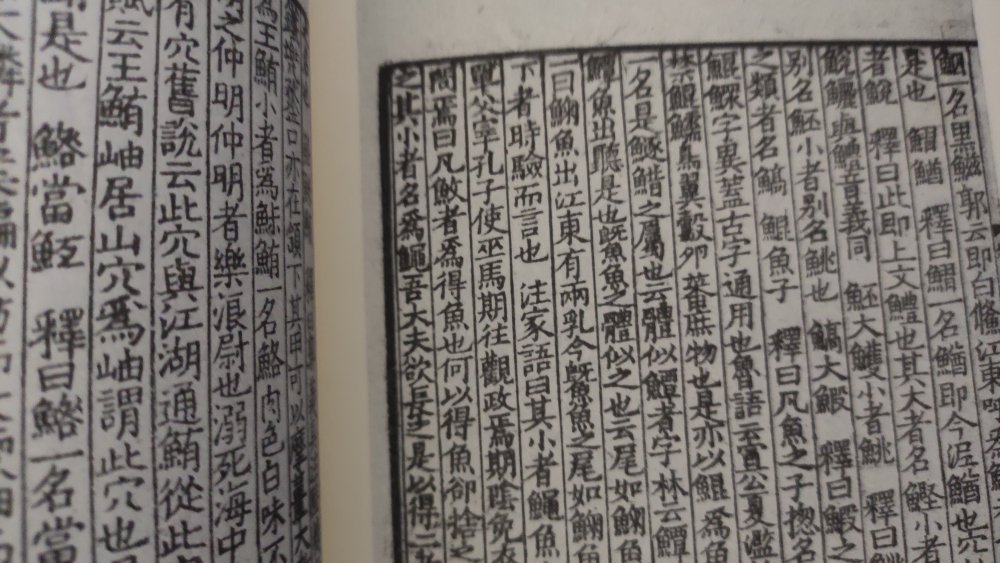 鮂一名黑鰦郭云即白鯈江東呼為鮂
是也　鰼鰌　釋曰鰼一名鰌即今泥鰌也穴
者鮵　釋曰此即上文鱧也其大者名鰹小者
鮵鱺與鱧音義同　魾大鱯小者鮡　釋曰
別名魾小者別名鮡也　鰝大鰕　釋曰鰕之
之類者名鰝　鯤魚子　釋曰凡魚之子揔名
鯤鰥字異蓋古字通用也魯語云宣公夏濫
禁鯤鱬鳥翼鷇卵蕃庶物也是亦以鯤為魚
一名是鱁鱛之屬也云體似鱏者字林云鱏
鱏魚出聽是也旣魚魚之體似之也云尾如䱡魚
一曰䱡魚出江東有兩乳今旣魚魚之尾如䱡魚
下者時驗而言也　注家語曰其小者鱦魚
單父宰孔子使巫馬期往觀政焉期陰免衣
問焉曰凡魰者為得魚也何以得魚卻捨之
之其小者名為鱦吾大夫欲長之是以得二者
口亦在頷下其甲可以摩薑大
為王鮪小者為鮛鮪一名鮥肉色白味不
之仲明仲明者樂浪尉也溺死海中
有穴舊說云此穴與江湖通鮪從此
賦云王鮪岫居山穴為岫謂此穴也
是也　鯦當魱　釋曰鯦一名當